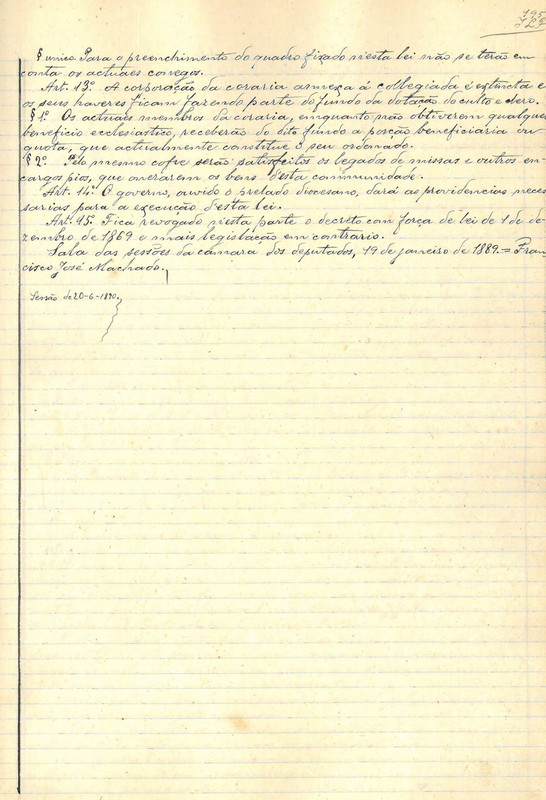 195
§ unico Para o preenchimento do quadro fixado n'esta lei não se terão em
conta os actuaes conegos.
Art. 13º. A corporação da coraria annexa á collegiada é extincta e
os seus haveres ficam fazendo parte do fundo da dotação do culto e clero.
§ 1º. Os actuaes membros da coraria, emquanto não obtiverem qualquer
beneficio ecclesiastico, receberão do dito fundo a porção beneficiaria ou
quota, que actualmente constitue o seu ordenado.
§ 2º. Pelo mesmo cofre serão satisfeitos os legados de missas e outros en-
cargos pios, que onerarem os bens d'esta communidade.
Art. 14º. O governo, ouvido o prelado diocesano, dará as providencias neces
sarias para a execução d'esta lei.
Art. 15º. Fica revogado n'esta parte o decreto com força de lei de 1 de de-
zembro de 1869 e mais legislação em contrario.
Sala das sessões da camara dos deputados, 19 de janeiro de 1889. = Fran
cisco José Machado.
Sessão de 20-6-1890.